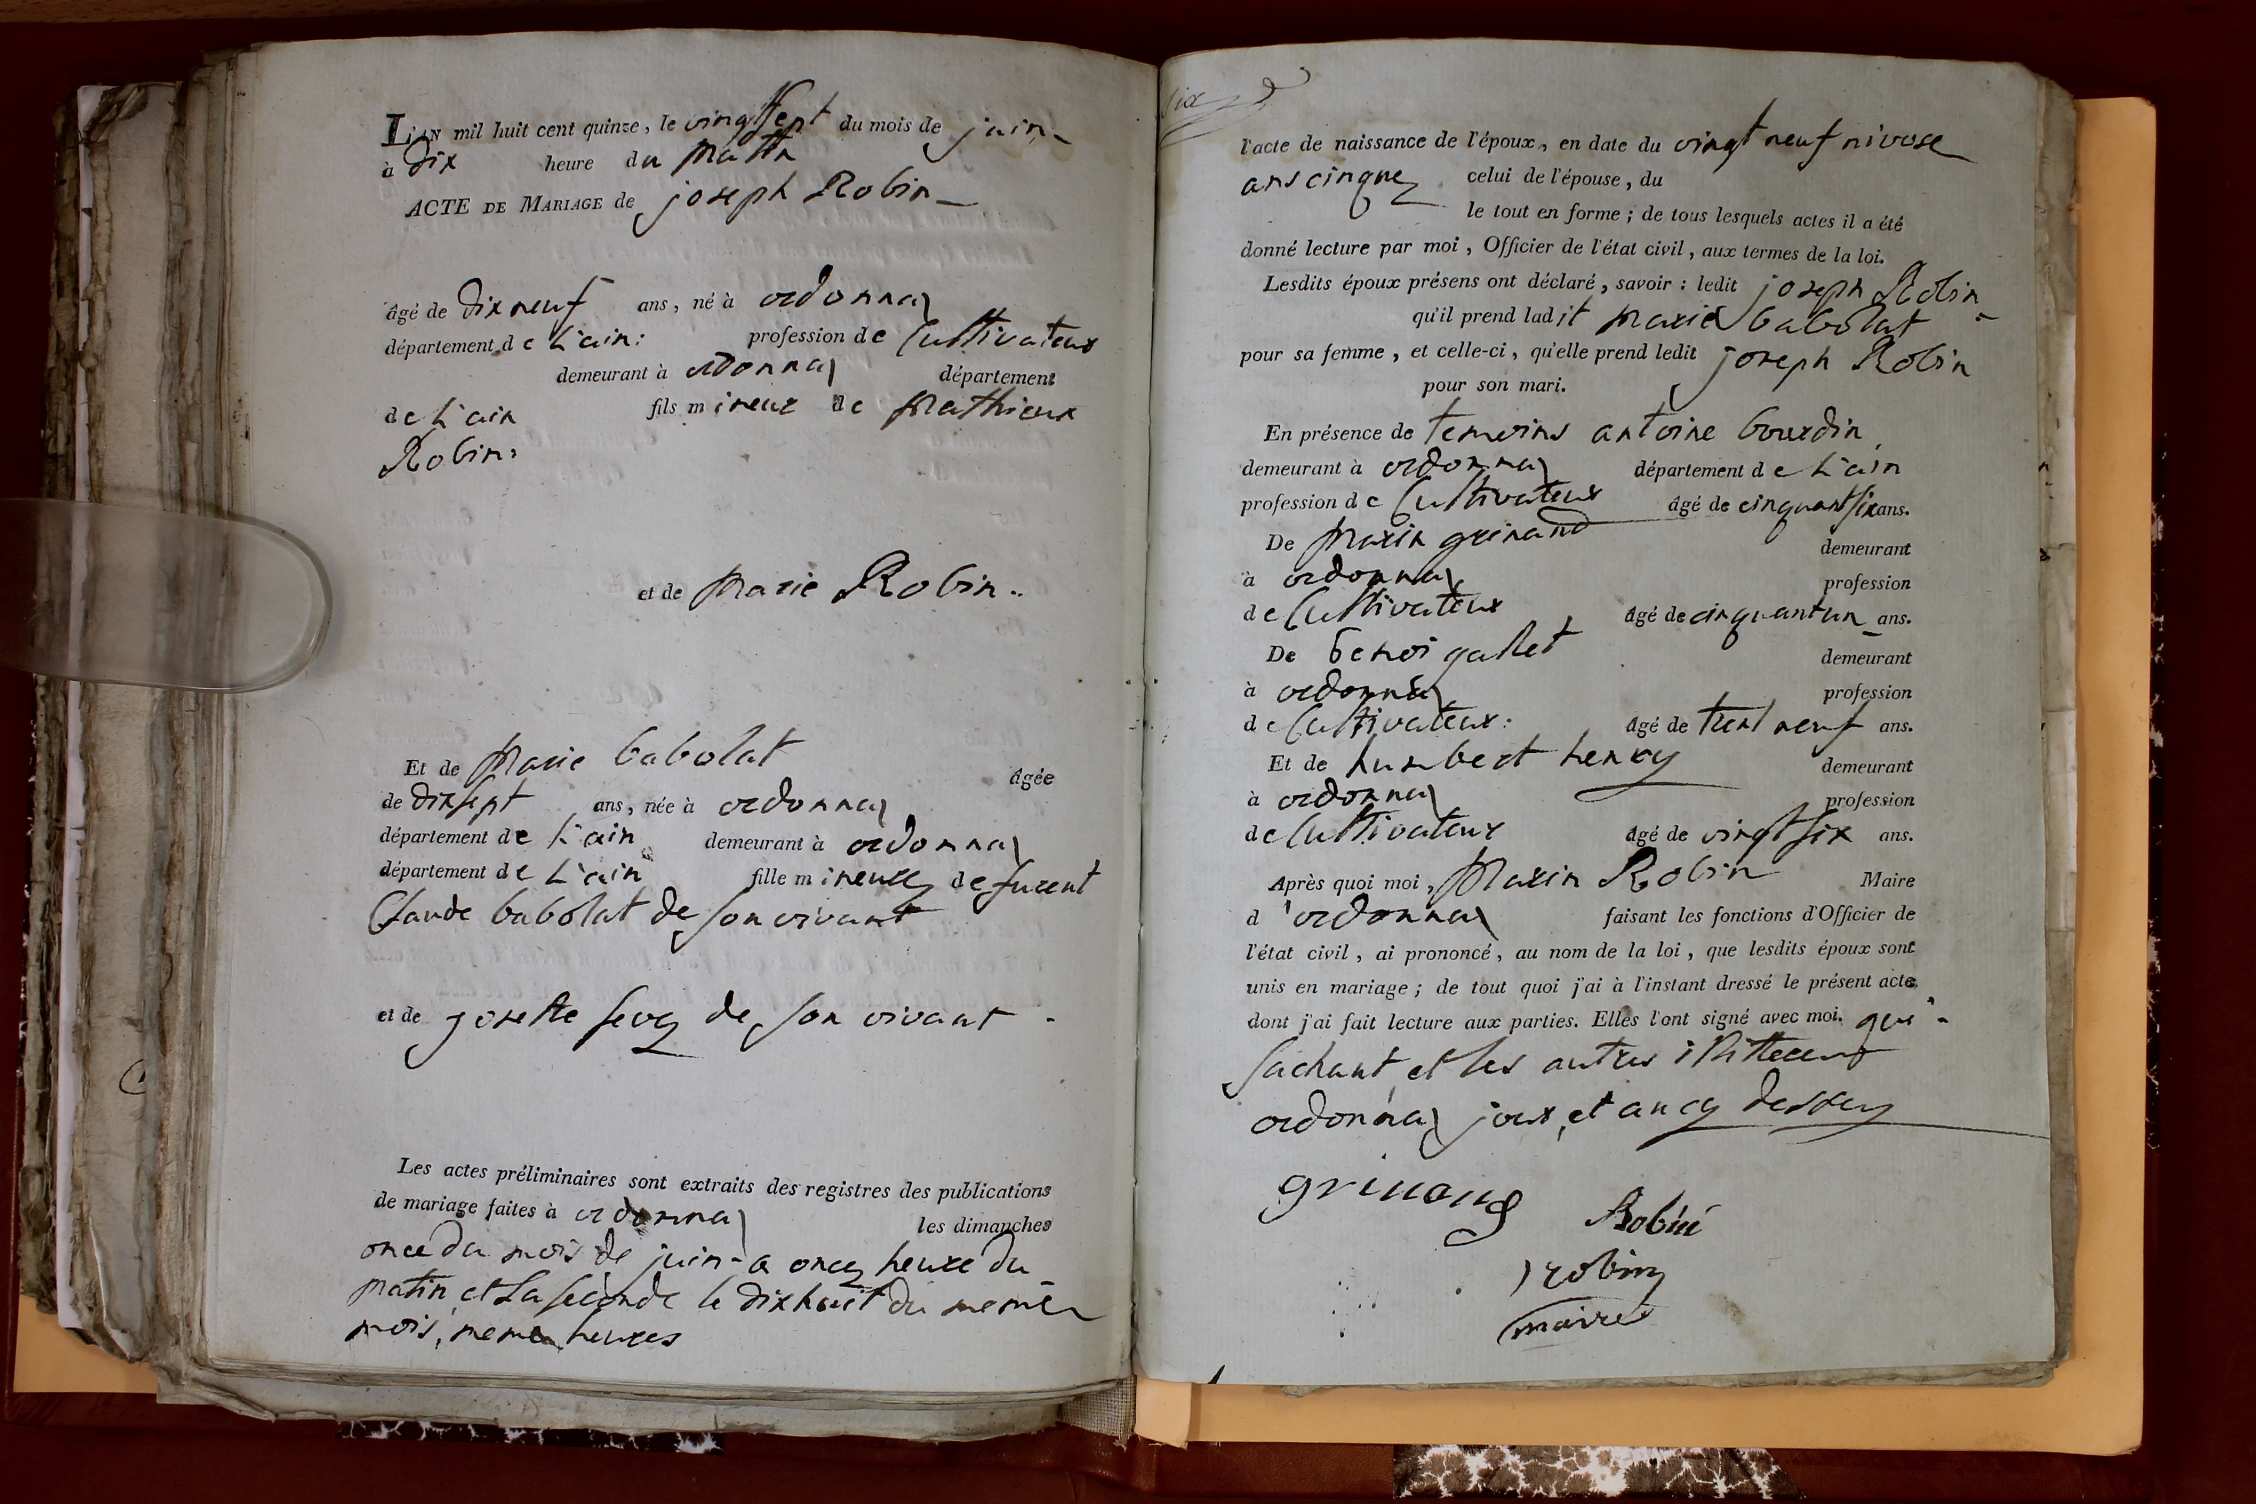 L'AN mil huit cent quinze, le vingt sept du mois de juin
à dix heure du matin
ACTE DE MARIAGE de joseph Robin
âgé de dix neuf ans, né à ordonnaz
département de L'ain : profession de Cultivateur
demeurant à ordonnaz département
de L'ain fils mineur de mathieux
Robin :
et de marie Robin ..
Et de marie babolat âgée
de dix sept ans, née à ordonnaz
département de L'ain demeurant à ordonnaz
département de L'ain fille mineure de furent
Claude babolat de son vivant
et de josette sevoz de son vivant -
Les actes préliminaires sont extraits des registres des publications
de mariage faites à ordonnaz les dimanches
once du mois de juin a once heure du
matin et La seconde le dix huit du meme
mois, meme heures
l'acte de naissance de l'époux, en date du vingt neuf nivose
ans cinque celui de l'épouse, du
le tout en forme ; de tous lesquels actes il a été
donné lecture par moi, Officier de l'état civil, aux termes de la loi.
Lesdits époux présens ont déclaré, savoir : ledit joseph Robin
qu'il prend ladit marie babolat
pour sa femme, et celle-ci, qu'elle prend ledit joseph Robin
pour son mari.
En présence de temoins antoine bourdin
demeurant à ordonnaz département de L'ain
profession de Cultivateur âgé de cinquant six ans.
De marin grinand demeurant
à ordonnaz profession
de Cultivateur âgé de cinquant un ans.
De benoi gallet demeurant
à ordonnaz profession
de Cultivateur : âgé de trent neuf ans.
Et de humbert henry demeurant
à ordonnaz profession
de Cultivateur âgé de vingt six ans.
Après quoi moi, marin Robin Maire
d'ordonnaz faisant les fonctions d'Officier de
l'état civil, ai prononcé, au nom de la loi, que lesdits époux sont
unis en mariage ; de tout quoi j'ai à l'instant dressé le présent acte
dont j'ai fait lecture aux parties. Elles l'ont signé avec moi. qui
sachant et les autres
ordonnaz jour, et
grinand Robin
robin
maire